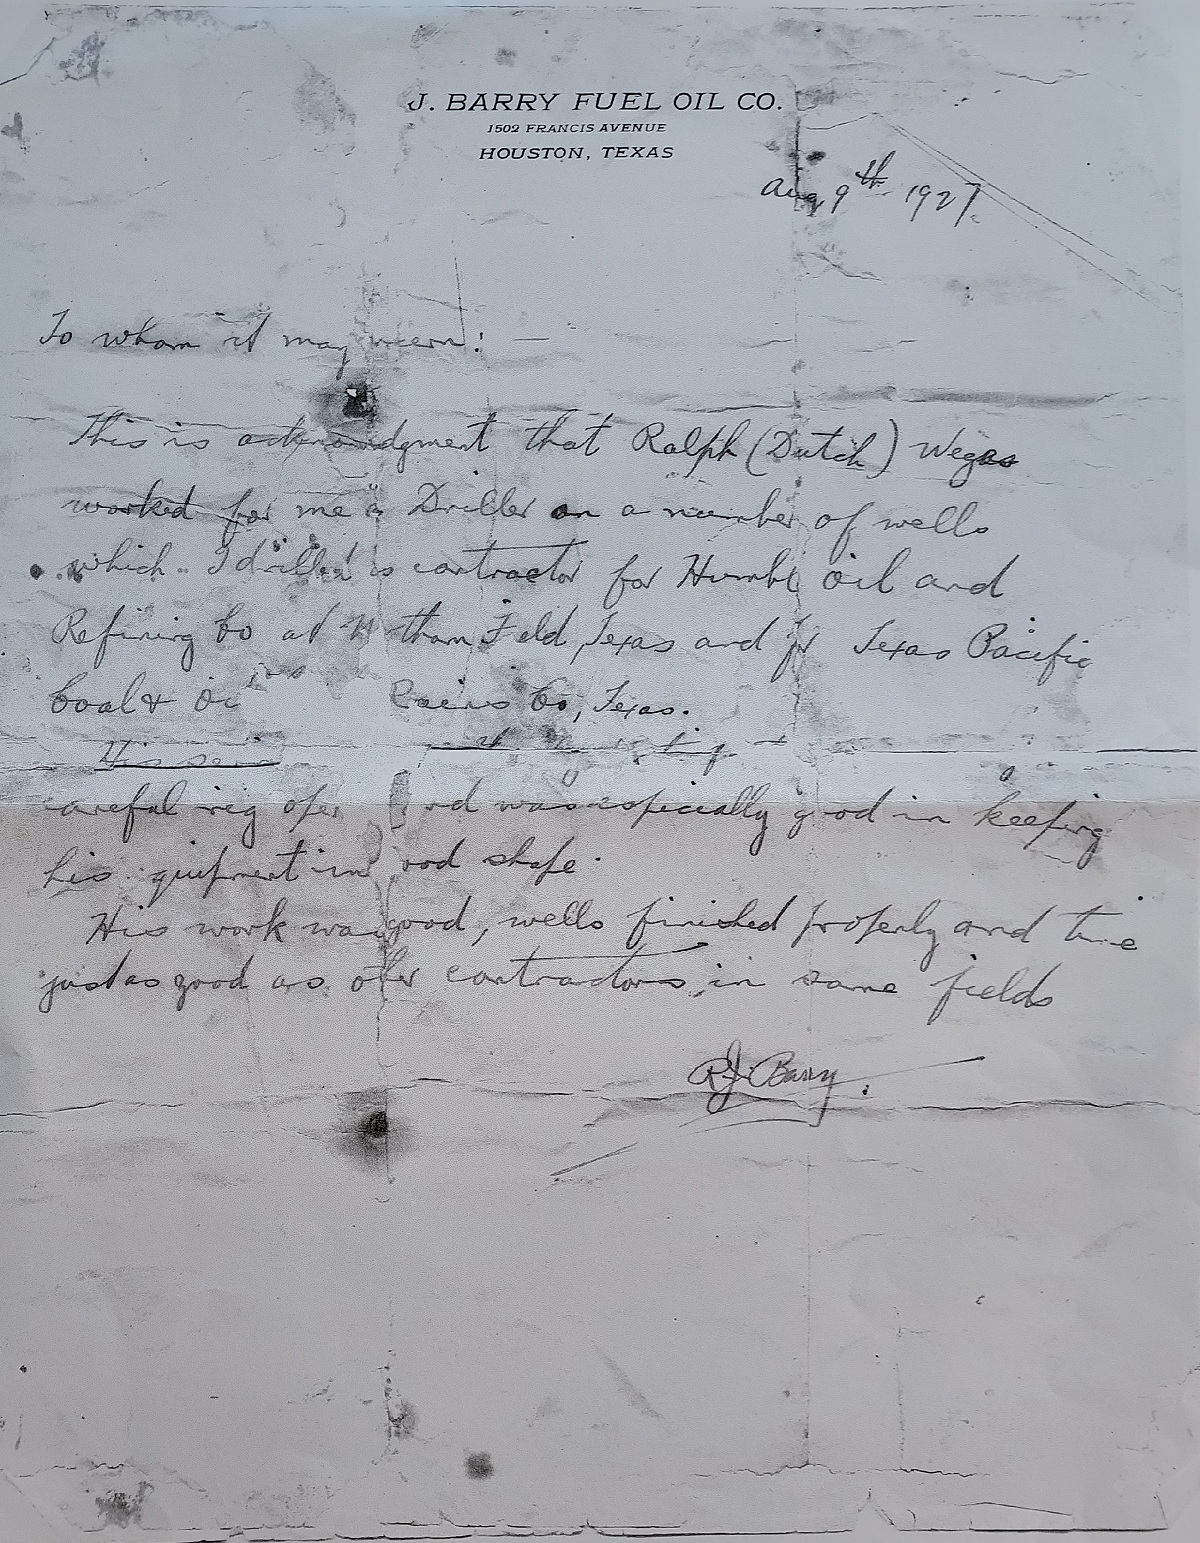 J. BARRY FUEL OIL CO.
1502 FRANCIS AVENUE
HOUSTON, TEXAS
Aug 9th 1927.
To whom it may concern: —
This is acknowledgment that Ralph (Dutch)
worked for me as Driller on a number of wells
which I drilled as contractor for Humble Oil and
Refining Co at tham Field, Texas and for Texas Pacific
Coal & Oil Co, Texas.
His
careful rig oper and was especially good in keeping
his equipment in good shape.
His work was good, wells finished properly and time
just as good as other contractors, in same fields
R.J. Barry.